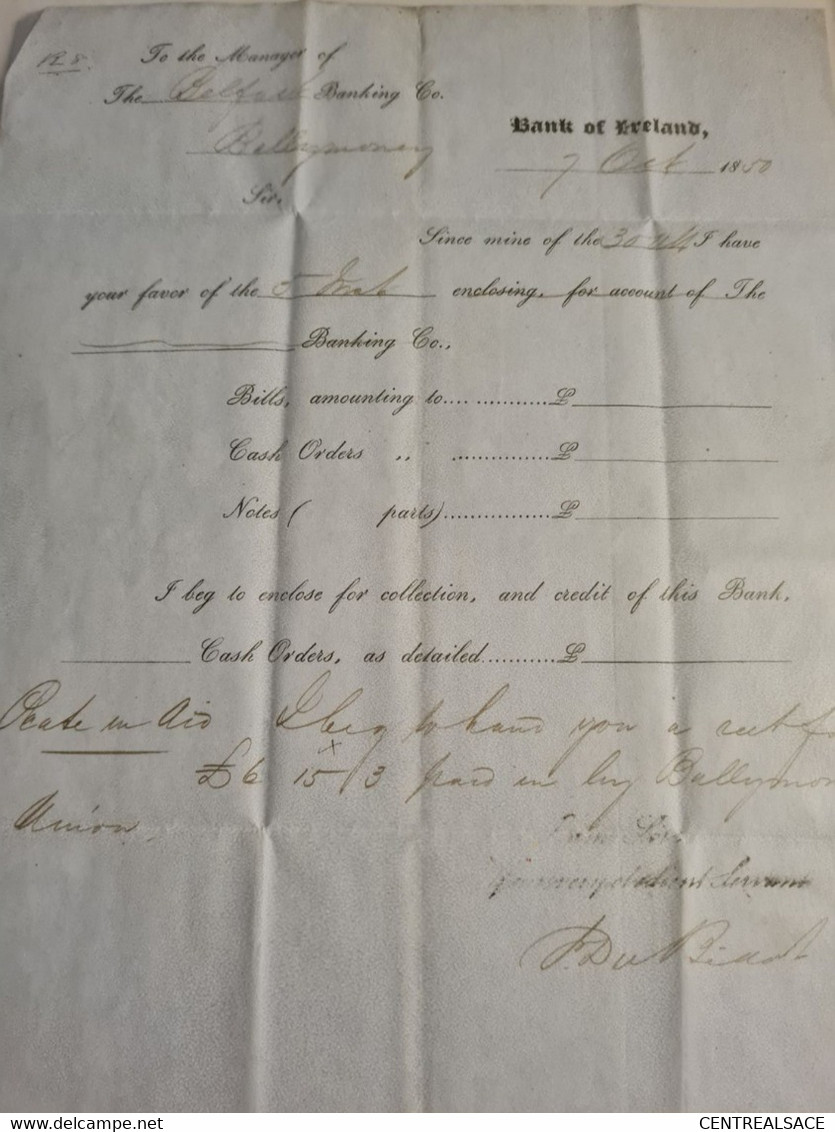 To the Manager of
The Belfast Banking Co.
Ballymoney
Bank of Ireland,
7 Oct 1850
Sir,
Since mine of the 30 ult I have
your favor of the 5 Inst enclosing, for account of The
Banking Co.,
Bills, amounting to £
Cash Orders ,, £
Notes ( parts) £
I beg to enclose for collection, and credit of this Bank,
Cash Orders, as detailed £
Rate in Aid I beg to hand you a rect fo
£6 15 3 paid in by Ballymon
Union,
I am Sir,
Your very obedient Servant
CENTREALSACE